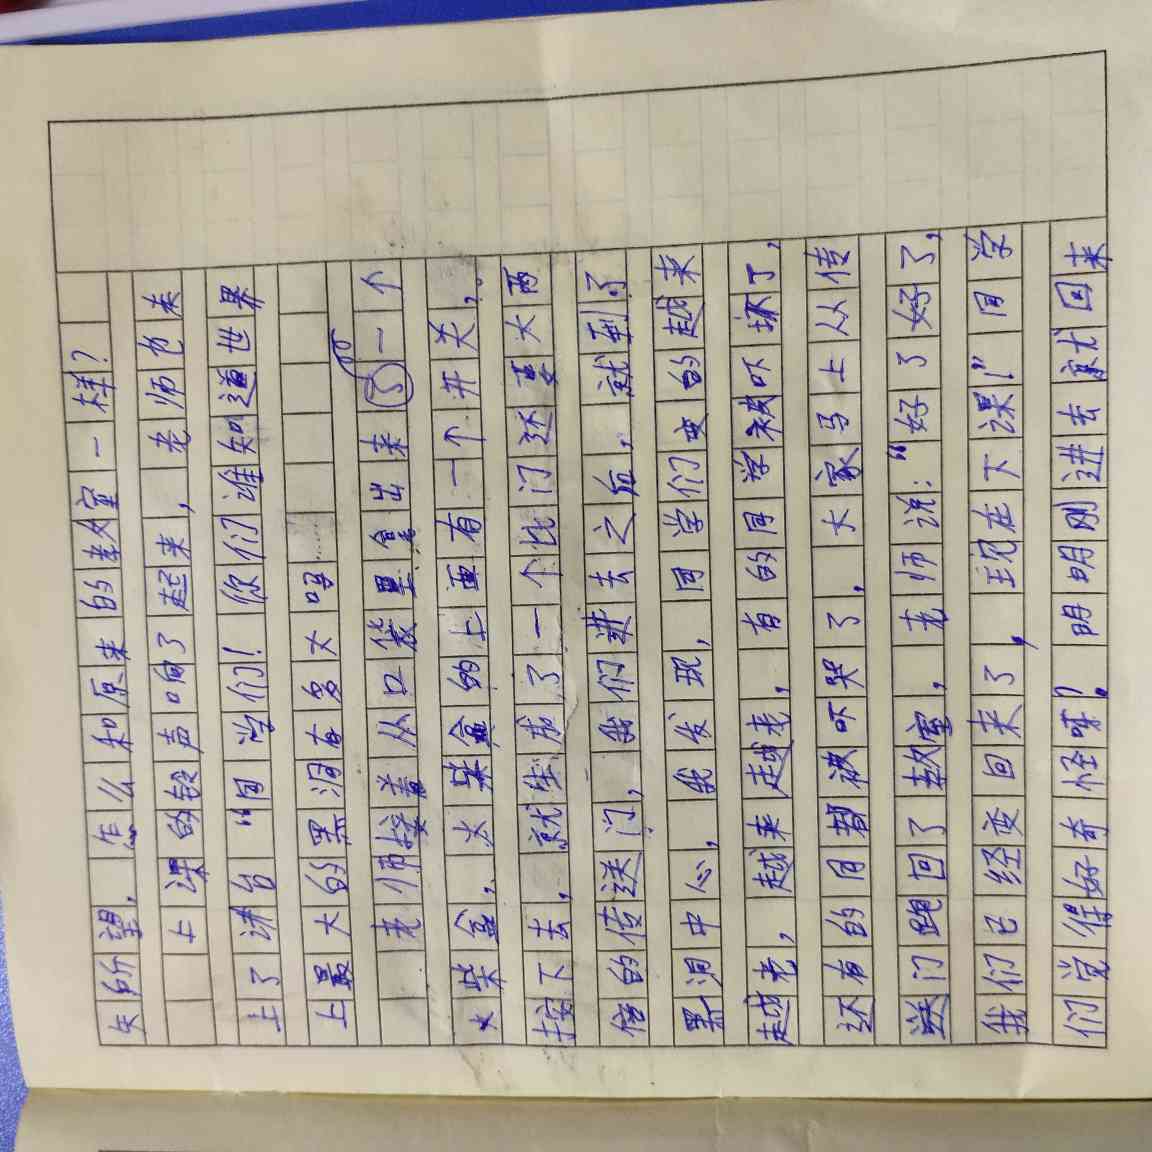 失所望，怎么和原来的教室一样？
上课的铃声响了起来，老师也来
上了讲台“同学们！你们谁知道世界
上最大的黑洞有多大呢……
老师接着从口袋里拿出来了一个
火柴盒，火柴盒的上面有一个开关，
按下去，就生成了一个比门还要大两
倍的传送门，我们进去之后，就到了
黑洞中心，我发现，同学们变的越来
越老，越来越老，有的同学被吓坏了，
还有的目瞪被吓哭了，大家马上从传
送门跑回了教室，老师说：“好了好了，
我们已经变回来了，现在下课！”同学
们觉得好奇怪啊？明明刚进去就回来